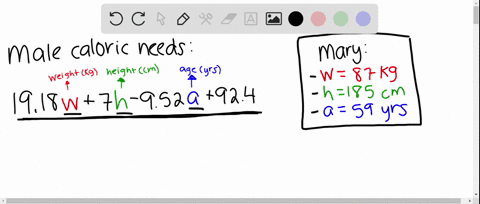 Male caloric needs:
weight(kg) height(cm) age(yrs)
19.18w+7h-9.52a+92.4
Mary:
-w=87kg
-h=185 cm
-a=59 yrs